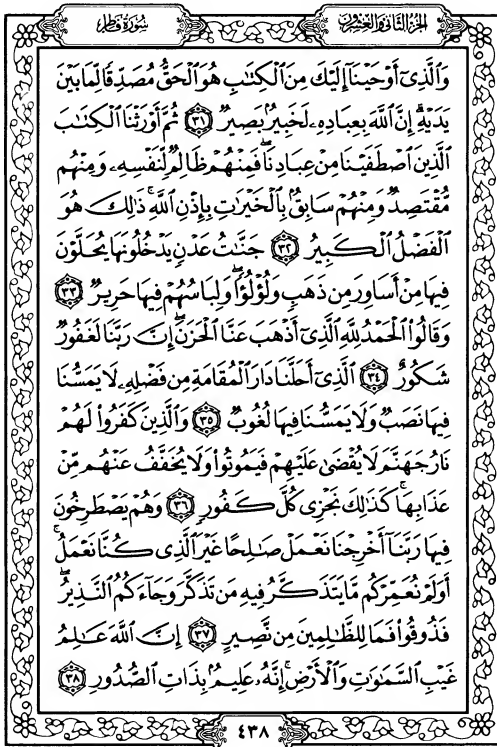 سورة فاطر
الجزء الثاني والعشرون
وَالَّذِىٓ أَوْحَيْنَآ إِلَيْكَ مِنَ ٱلْكِتَٰبِ هُوَ ٱلْحَقُّ مُصَدِّقًا لِّمَا بَيْنَ
يَدَيْهِ ۗ إِنَّ ٱللَّهَ بِعِبَادِهِۦ لَخَبِيرٌۢ بَصِيرٌ ٣١ ثُمَّ أَوْرَثْنَا ٱلْكِتَٰبَ
ٱلَّذِينَ ٱصْطَفَيْنَا مِنْ عِبَادِنَا ۖ فَمِنْهُمْ ظَالِمٌ لِّنَفْسِهِۦ وَمِنْهُم
مُّقْتَصِدٌ وَمِنْهُمْ سَابِقٌۢ بِٱلْخَيْرَٰتِ بِإِذْنِ ٱللَّهِ ۚ ذَٰلِكَ هُوَ
ٱلْفَضْلُ ٱلْكَبِيرُ ٣٢ جَنَّٰتُ عَدْنٍ يَدْخُلُونَهَا يُحَلَّوْنَ
فِيهَا مِنْ أَسَاوِرَ مِن ذَهَبٍ وَلُؤْلُؤًا ۖ وَلِبَاسُهُمْ فِيهَا حَرِيرٌ ٣٣
وَقَالُوا۟ ٱلْحَمْدُ لِلَّهِ ٱلَّذِىٓ أَذْهَبَ عَنَّا ٱلْحَزَنَ ۖ إِنَّ رَبَّنَا لَغَفُورٌ
شَكُورٌ ٣٤ ٱلَّذِىٓ أَحَلَّنَا دَارَ ٱلْمُقَامَةِ مِن فَضْلِهِۦ لَا يَمَسُّنَا
فِيهَا نَصَبٌ وَلَا يَمَسُّنَا فِيهَا لُغُوبٌ ٣٥ وَٱلَّذِينَ كَفَرُوا۟ لَهُمْ
نَارُ جَهَنَّمَ لَا يُقْضَىٰ عَلَيْهِمْ فَيَمُوتُوا۟ وَلَا يُخَفَّفُ عَنْهُم مِّنْ
عَذَابِهَا ۚ كَذَٰلِكَ نَجْزِى كُلَّ كَفُورٍ ٣٦ وَهُمْ يَصْطَرِخُونَ
فِيهَا رَبَّنَآ أَخْرِجْنَا نَعْمَلْ صَٰلِحًا غَيْرَ ٱلَّذِى كُنَّا نَعْمَلُ ۚ
أَوَلَمْ نُعَمِّرْكُم مَّا يَتَذَكَّرُ فِيهِ مَن تَذَكَّرَ وَجَآءَكُمُ ٱلنَّذِيرُ ۖ
فَذُوقُوا۟ فَمَا لِلظَّٰلِمِينَ مِن نَّصِيرٍ ٣٧ إِنَّ ٱللَّهَ عَٰلِمُ
غَيْبِ ٱلسَّمَٰوَٰتِ وَٱلْأَرْضِ ۚ إِنَّهُۥ عَلِيمٌۢ بِذَاتِ ٱلصُّدُورِ ٣٨
٤٣٨